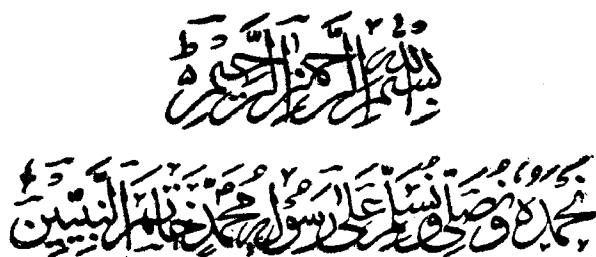 بِسْمِ اللهِ الرَّحْمٰنِ الرَّحِيْمِ
نَحْمَدُهُ وَنُصَلِّي وَنُسَلِّمُ عَلَى رَسُوْلِهِ مُحَمَّدٍ خَاتَمِ النَّبِيِّيْنَ